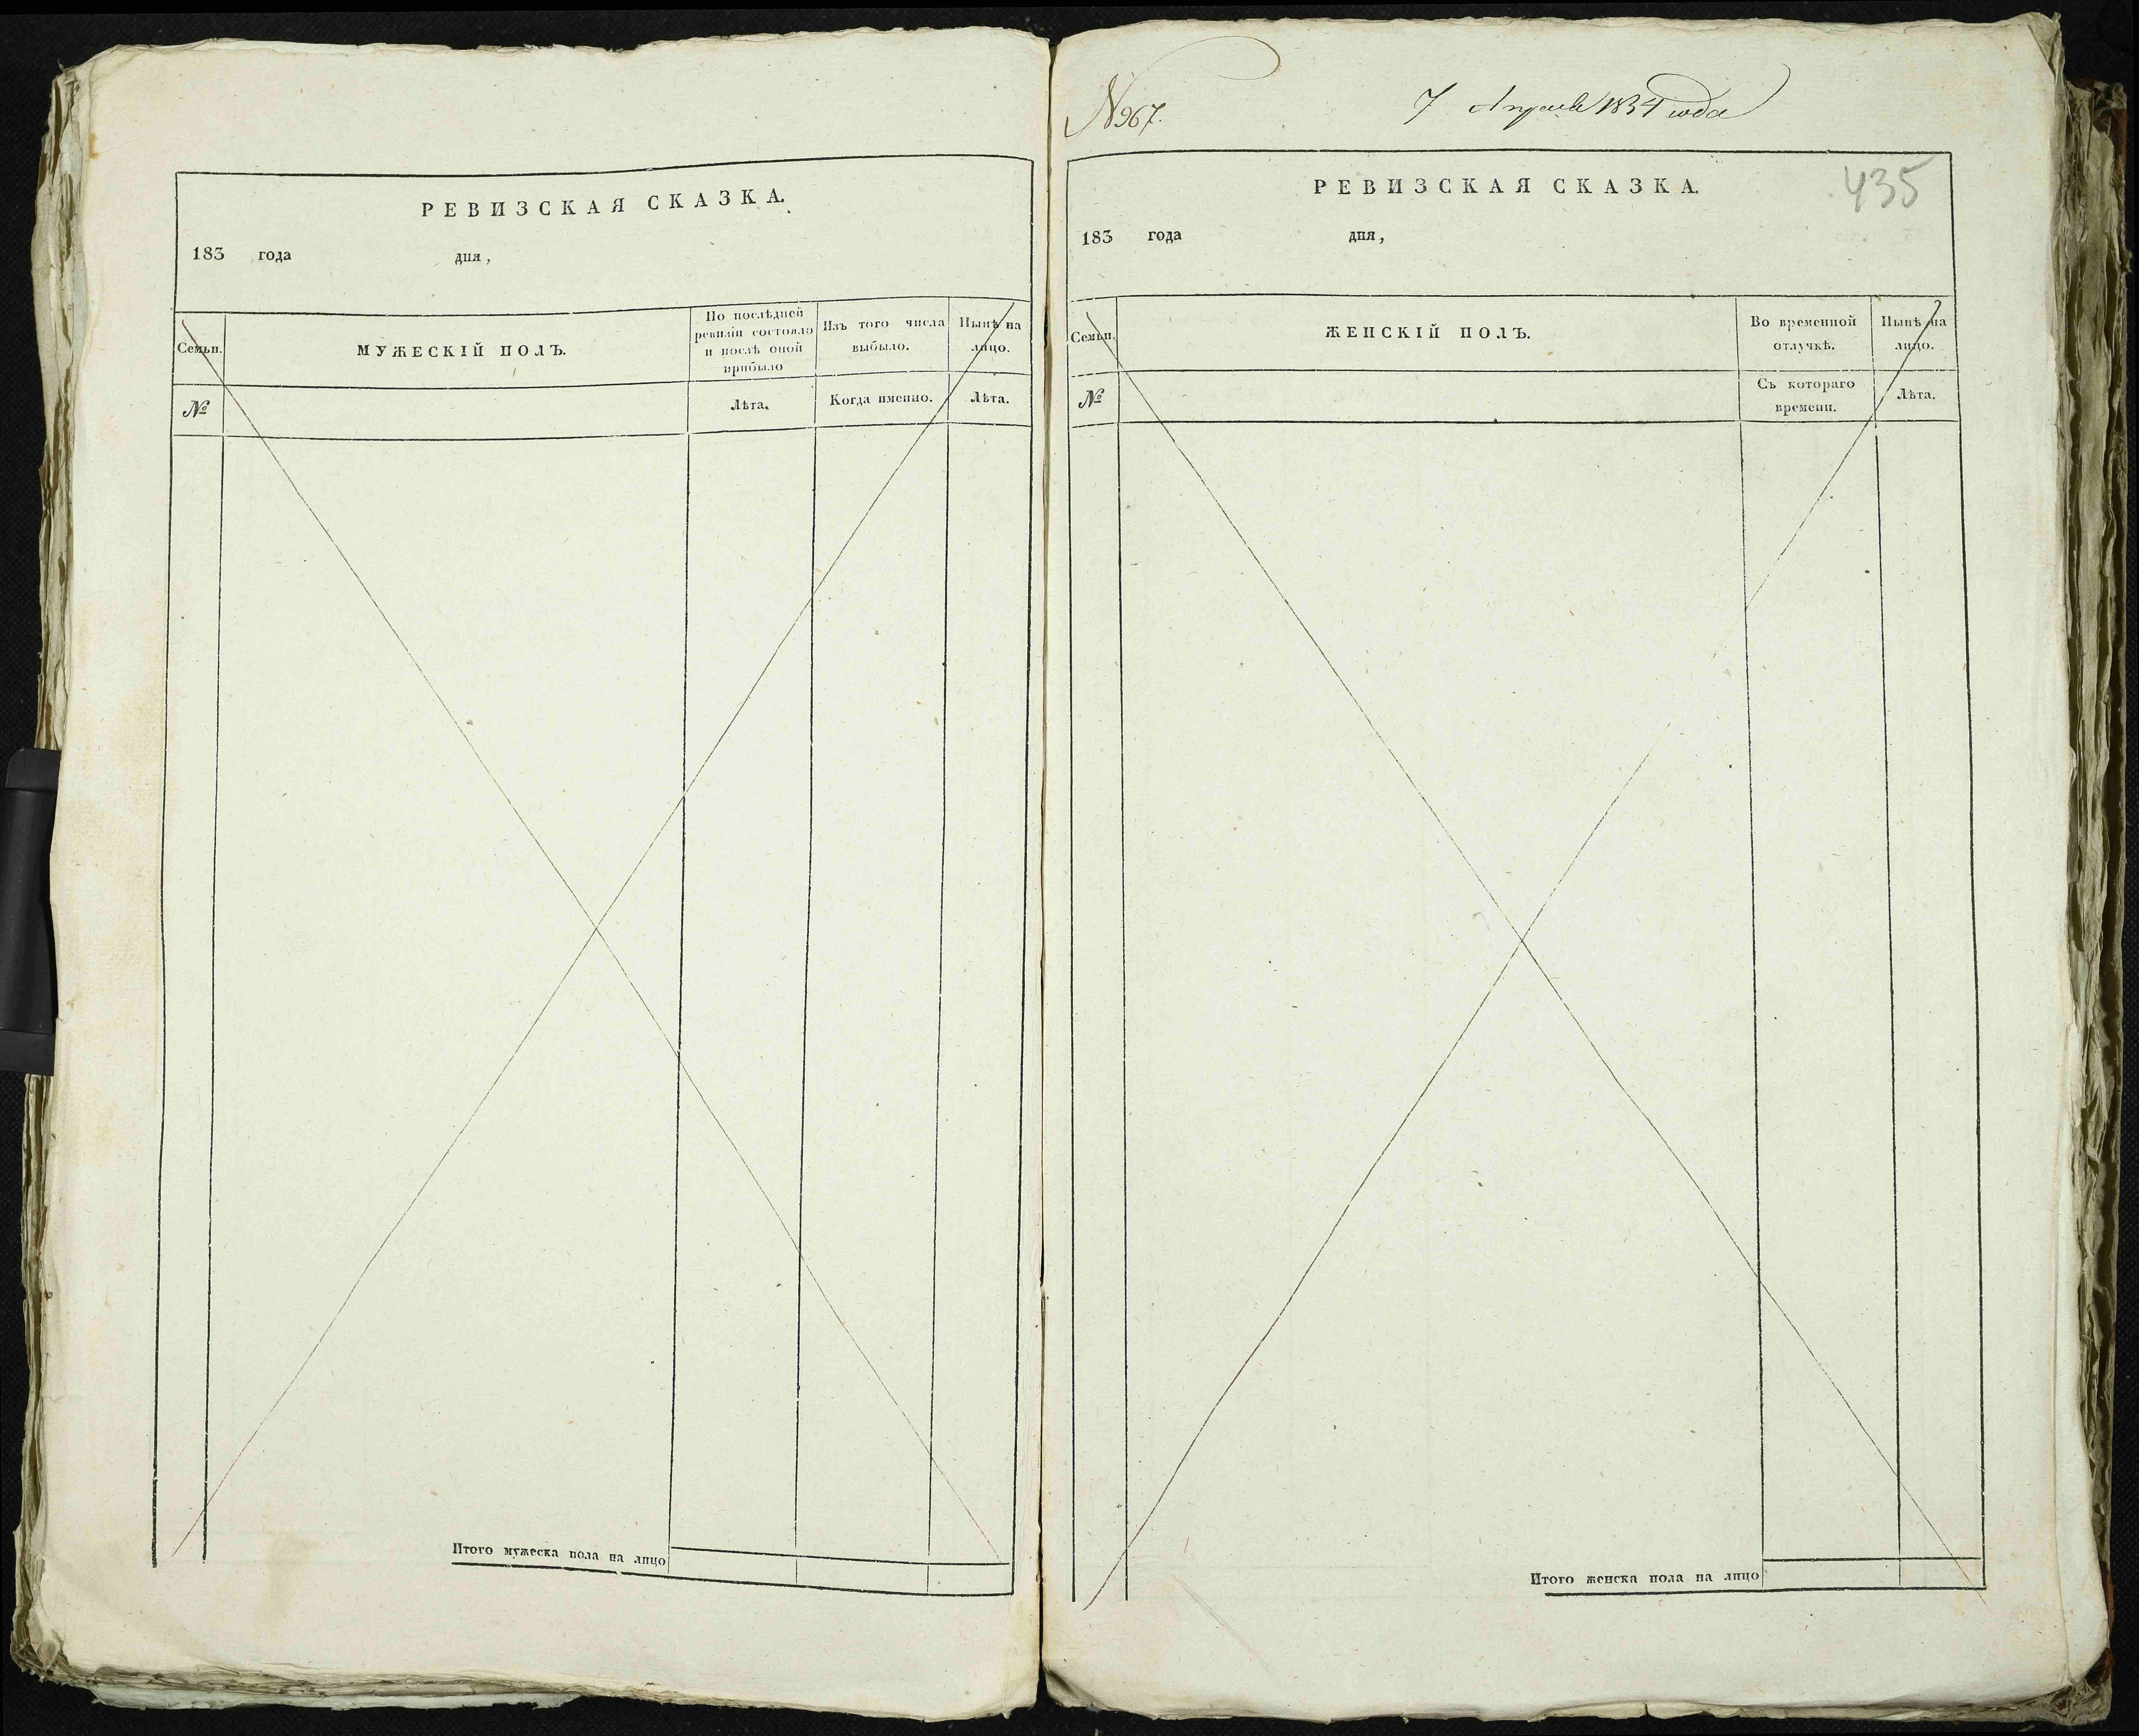 РЕВИЗСКАЯ СКАЗКА.
183 года дня,
Семьи.
МУЖЕСКІЙ ПОЛЪ.
По послѣдней
ревизіи состояло
и послѣ оной
прибыло
Изъ того числа
выбыло.
Нынѣ на
лицо.
№
Лѣта.
Когда именно.
Лѣта.
Итого мужеска пола на лицо
№ 967.
7 Апреля 1834 года
435
РЕВИЗСКАЯ СКАЗКА.
183 года дня,
Семьи.
ЖЕНСКІЙ ПОЛЪ.
Во временной
отлучкѣ.
Нынѣ на
лицо.
№
Съ котораго
времени.
Лѣта.
Итого женска пола на лицо